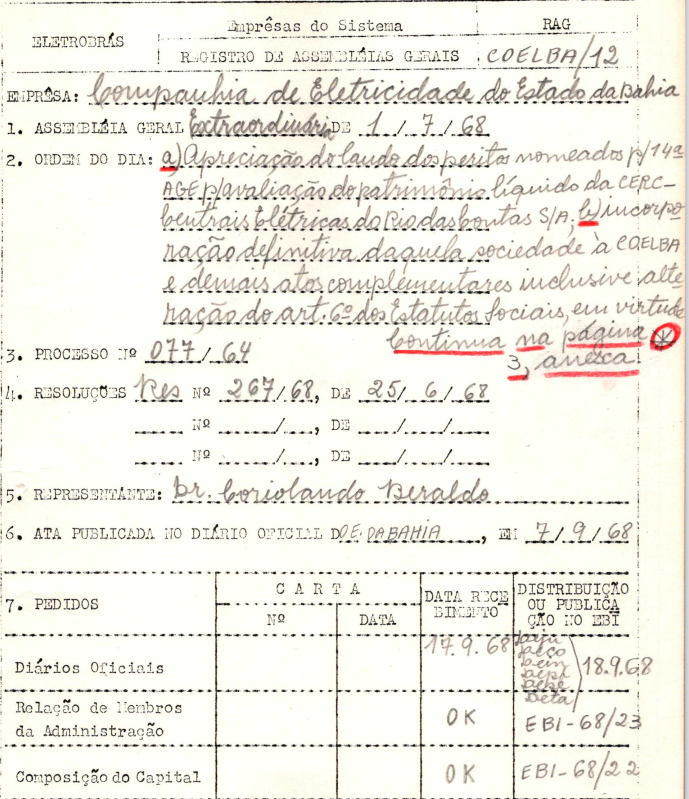 ELETROBRÁS
Emprêsas do Sistema
RAG
REGISTRO DE ASSEMBLÉIAS GERAIS
COELBA/12
EMPRÊSA: Companhia de Eletricidade do Estado da Bahia
1. ASSEMBLÉIA GERAL Extraordinária DE 1 / 7 / 68
2. ORDEM DO DIA: a) Apreciação do laudo dos peritos nomeados p/ 14ª
AGE p/ avaliação do patrimônio líquido da CERC-
Centrais Elétricas do Rio das Contas S/A; b) incorpo
ração definitiva daquela sociedade à COELBA
e demais atos complementares inclusive alte
ração do art. 6º dos Estatutos Sociais, em virtude
Continua na página *
3, anexa.
3. PROCESSO Nº 077 / 64
4. RESOLUÇÕES Res Nº 267/68, DE 25/ 6 / 68
Nº / , DE / /
Nº / , DE / /
5. REPRESENTANTE: Dr. Coriolando Beraldo
6. ATA PUBLICADA NO DIÁRIO OFICIAL DO E. DA BAHIA, EM 7/9/68
7. PEDIDOS
C A R T A
Nº
DATA
DATA RECE
BIMENTO
DISTRIBUIÇÃO
OU PUBLICA
ÇÃO NO EBI
Diários Oficiais
17.9.68
18.9.68
Relação de Membros
da Administração
OK
EBI-68/23
Composição do Capital
OK
EBI-68/22